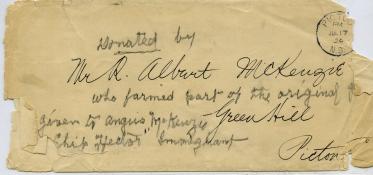 PICTOU
PM
JUL 17
N.S.
Donated by
Mr R. Albert McKenzie
who farmed part of the original
given to Angus McKenzie
Green Hill
"Ship Hector" Immigrant
Pictou